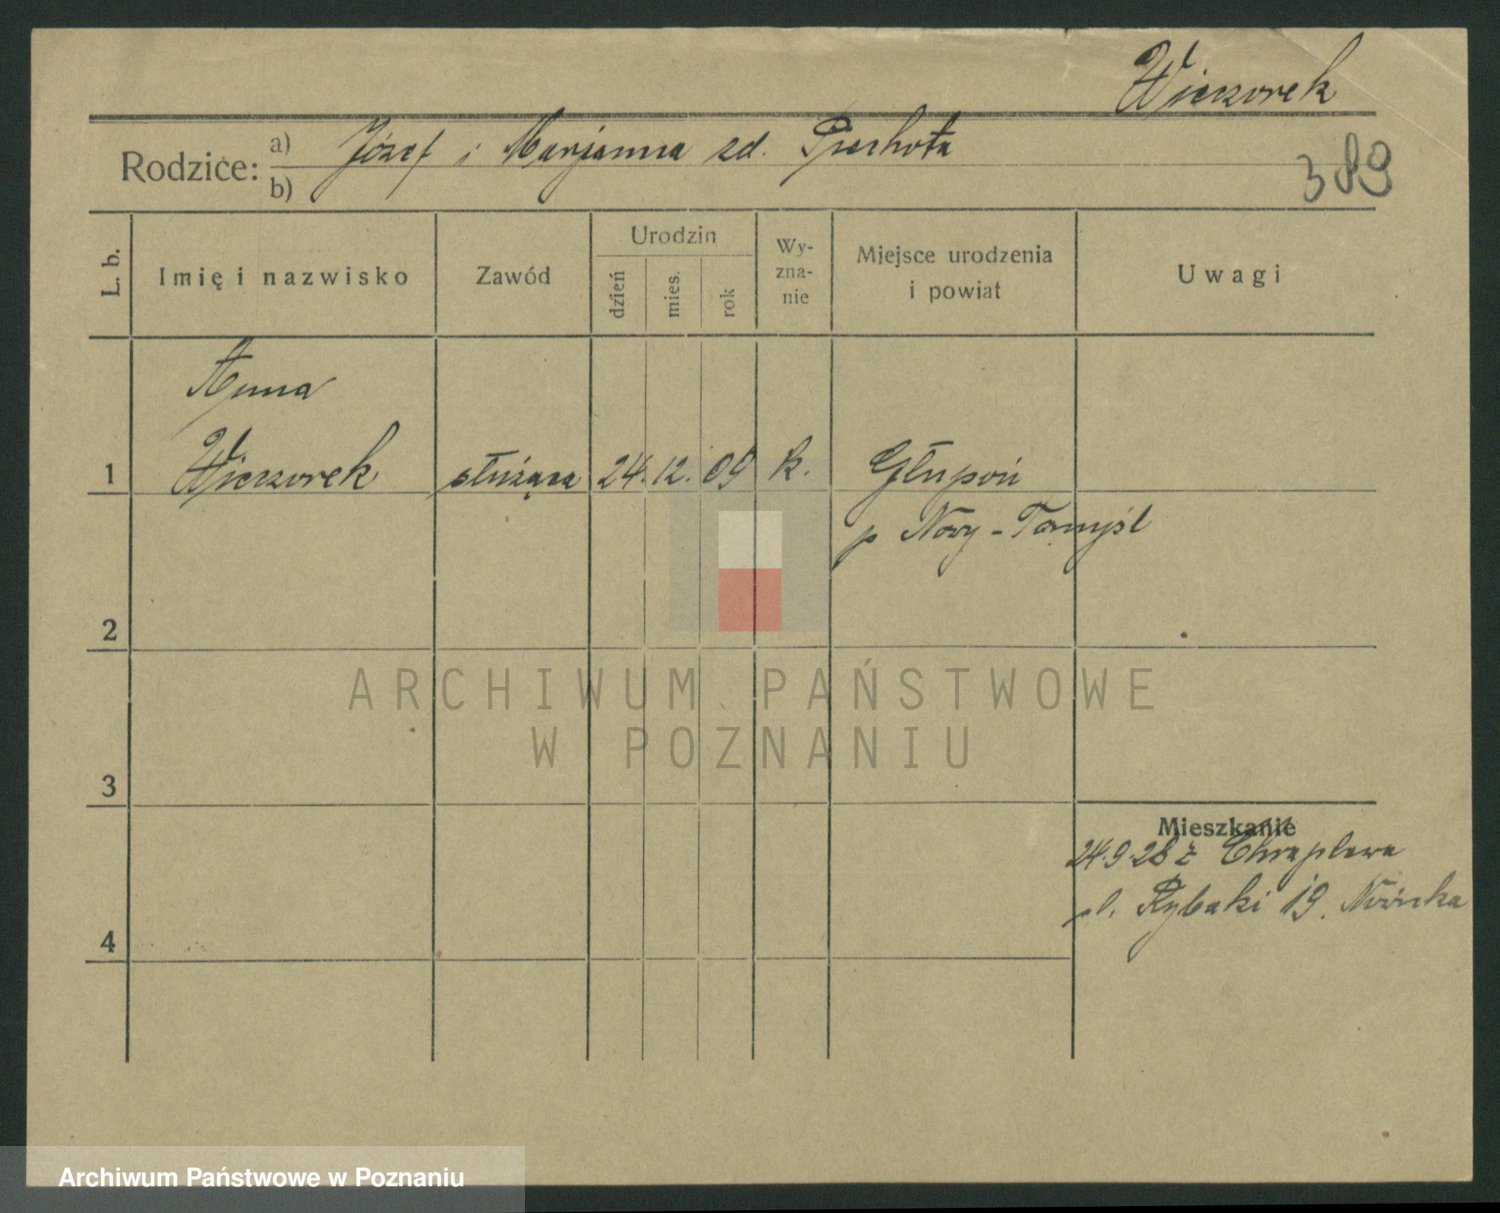 Wieczorek
Rodzice: a) Józef i Marjanna zd. Piechota
b)
389
L. b. Imię i nazwisko Zawód Urodzin dzień mies. rok Wy-zna-nie Miejsce urodzenia i powiat Uwagi
Anna
1 Wieczorek służąca 24. 12. 09 k. Głupoń
p Nowy-Tomyśl
2
ARCHIWUM PAŃSTWOWE
W POZNANIU
3
Mieszkanie
24.9.28 z Chraplewa
ul. Rybaki 19.
4
Archiwum Państwowe w Poznaniu